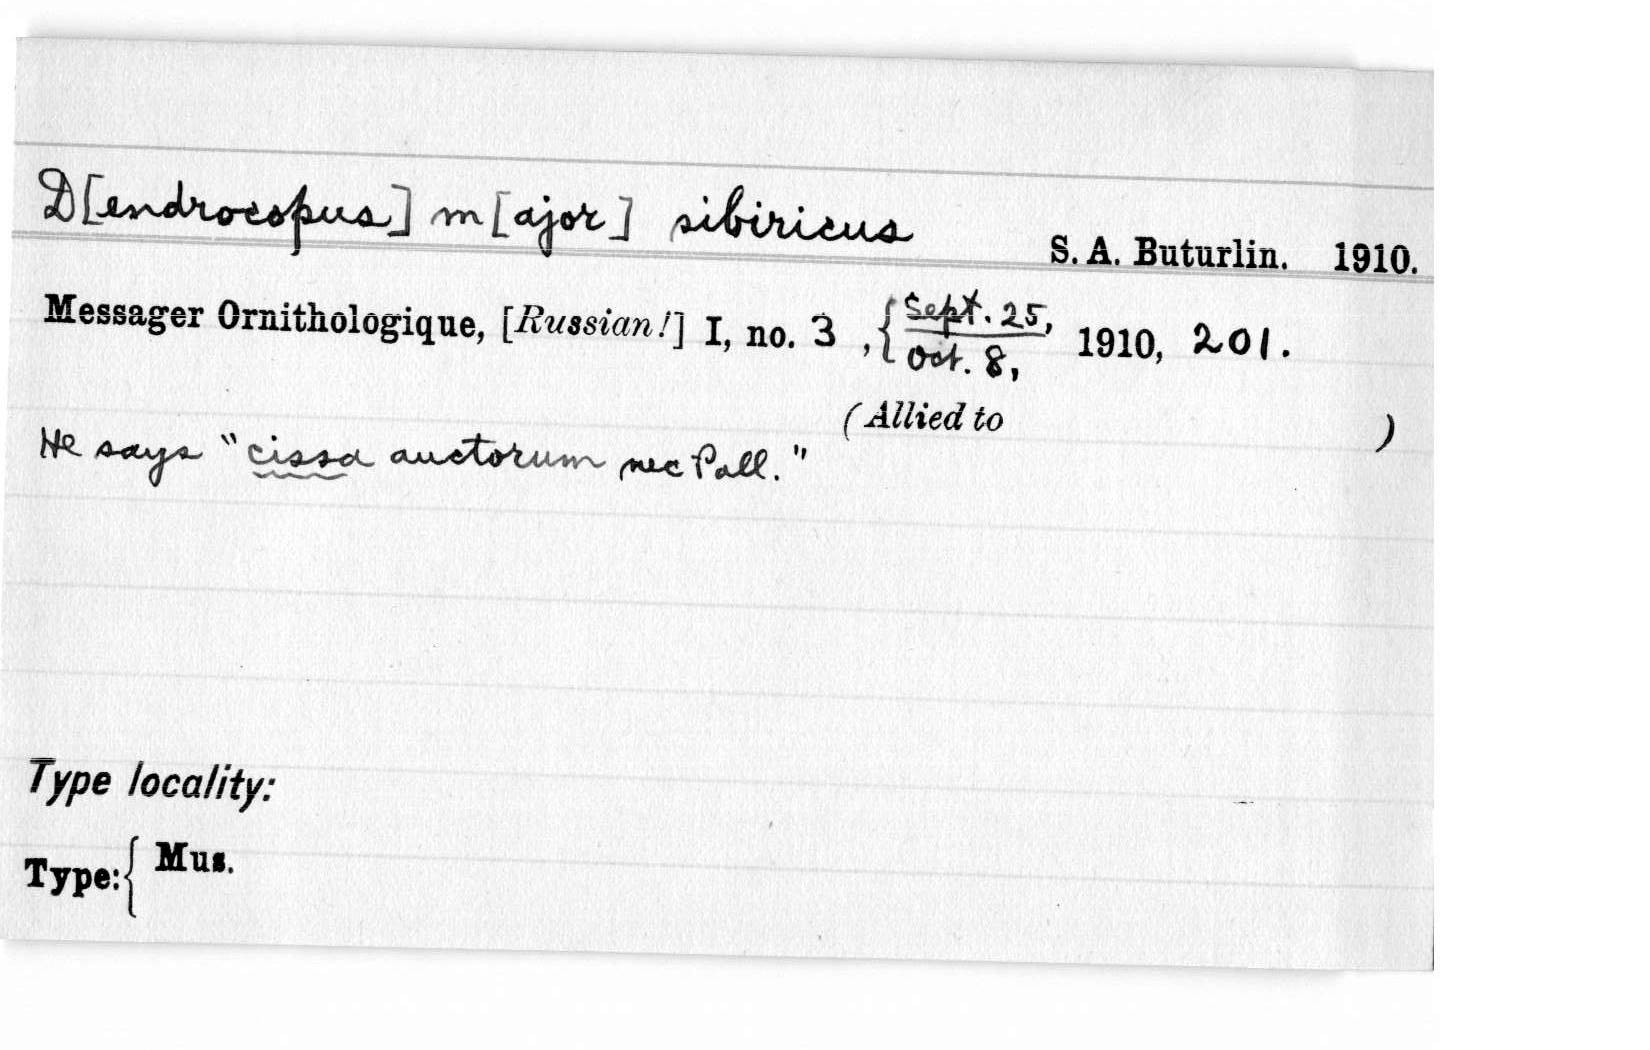 D[endrocopus] m[ajor] sibiricus
S. A. Buturlin. 1910.
Messager Ornithologique, [Russian!] I, no. 3 ,{Sept. 25, / Oct. 8, 1910, 201.
(Allied to )
He says "cissa auctorum nec Pall."
Type locality:
Type:{ Mus.